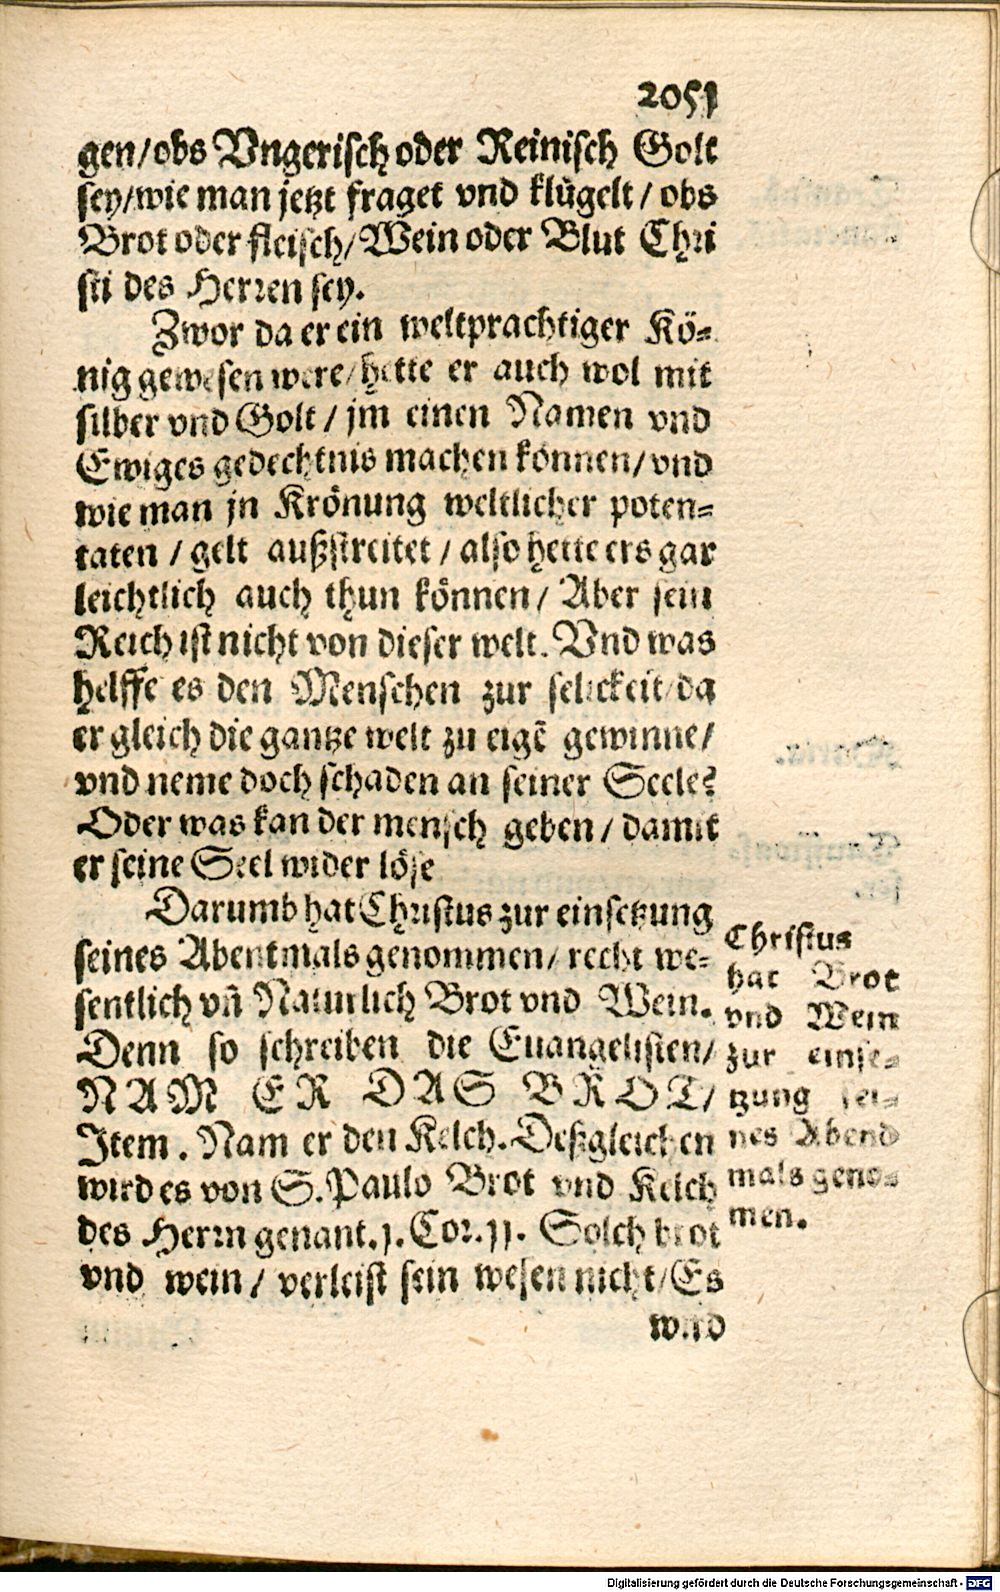 2051
gen/obs Vngerisch oder Reinisch Golt
sey/wie man jetzt fraget vnd klügelt/ obs
Brot oder fleisch/Wein oder Blut Chri
sti des Herren sey.
Zwor da er ein weltprachtiger Kö-
nig gewesen were/hette er auch wol mit
silber vnd Golt / jm einen Namen vnd
Ewiges gedechtnis machen können/vnd
wie man jn Krönung weltlicher poten-
taten / gelt außstreitet / also hette ers gar
leichtlich auch thun können/ Aber sein
Reich ist nicht von dieser welt. Vnd was
helffe es den Menschen zur selickeit/da
er gleich die gantze welt zu eigẽ gewinne/
vnd neme doch schaden an seiner Seele?
Oder was kan der mensch geben/ damit
er seine Seel wider löse
Darumb hat Christus zur einsetzung
seines Abentmals genommen/ recht we-
sentlich vñ Naturlich Brot vnd Wein.
Denn so schreiben die Euangelisten/
NAM ER DAS BROT/
Item. Nam er den Kelch. Deßgleichen
wird es von S. Paulo Brot vnd Kelch
des Herrn genant.j. Cor. jj. Solch brot
vnd wein/ verleist sein wesen nicht/Es
wird
Christus
hat Brot
vnd Wein
zur einse-
tzung sei-
nes Abend
mals geno-
men.
Digitalisierung gefördert durch die Deutsche Forschungsgemeinschaft - DFG